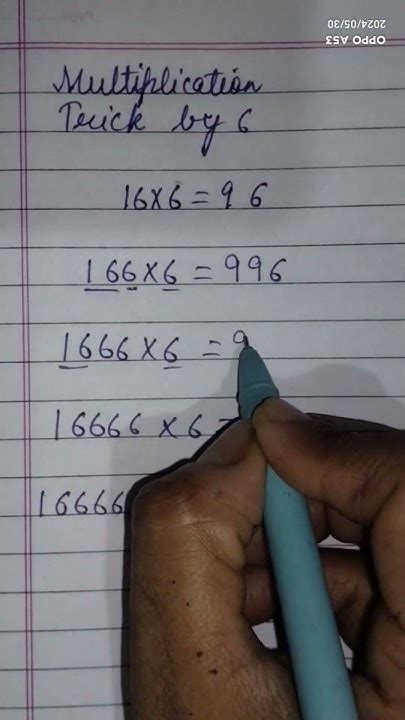 2024/05/30
OPPO A53
Multiplication
Trick by 6
16×6=96
166×6=996
1666×6=9
16666×6=
16666